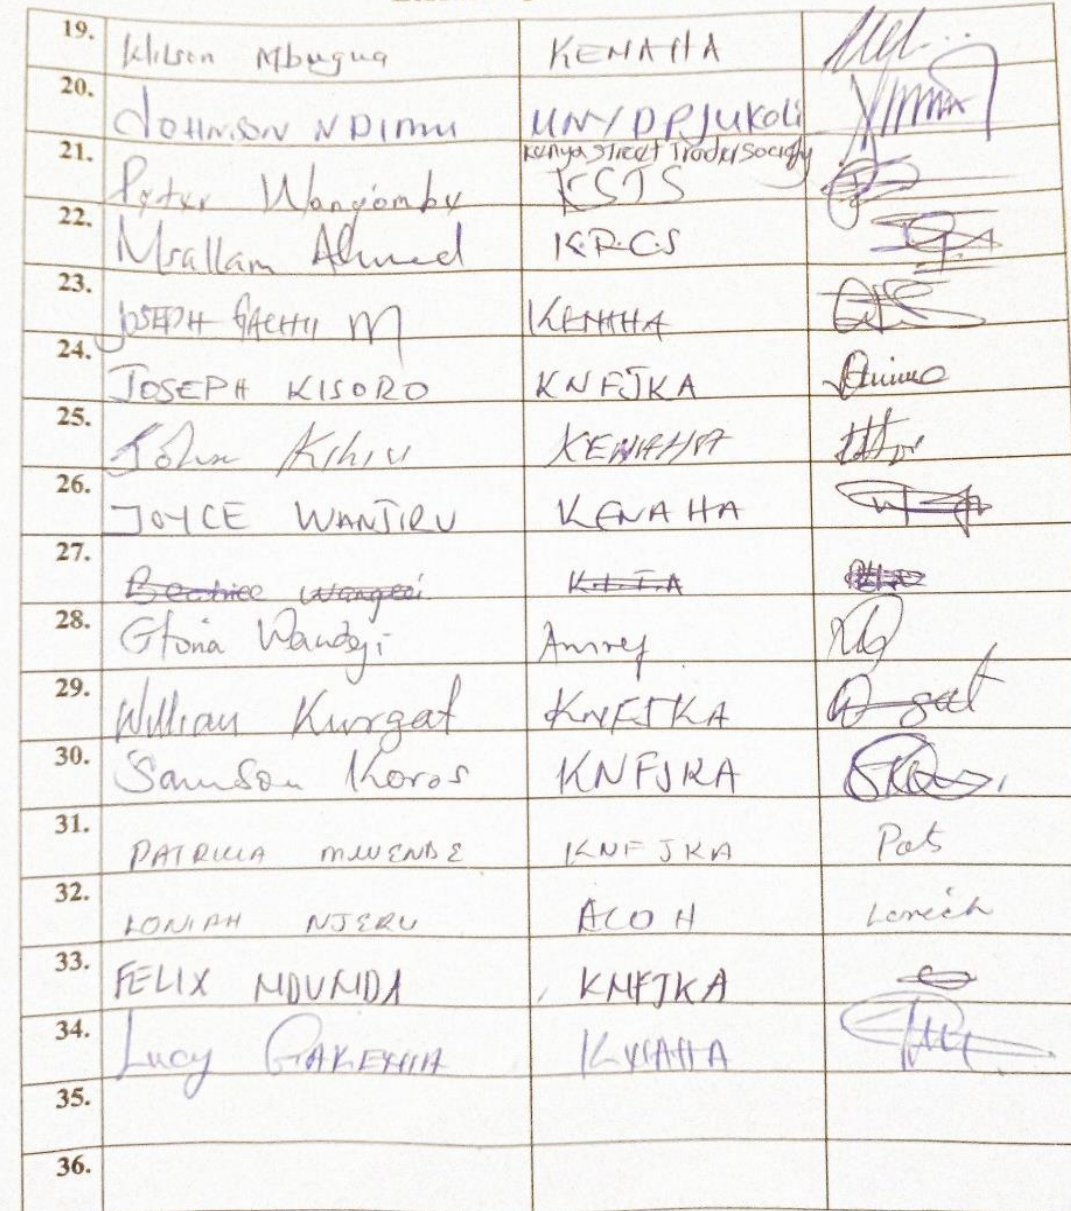 19. Wilson Mbugua KENAHA
20. JOHNSON NDIMU UN/DPJUKoli
Kenya Street Trader Society
21. Peter Wanyomby KSTS
22. Msallam Ahmed K.R.C.S
23. JOSEPH GACHII M KENAHA
24. JOSEPH KISORO KNFJKA
25. John Kihiu KENAHA
26. JOYCE WANJIRU KENAHA
27. Beatrice
28. Gloria Wandegi Amref
29. William Kurgat KNFJKA
30. Samson Koros KNFJKA
31. PATRICIA MWENDE KNFJKA Pats
32. LONIAH NJERU ACOH
33. FELIX NDUNDA KNFJKA
34. Lucy GAKENIA
35.
36.